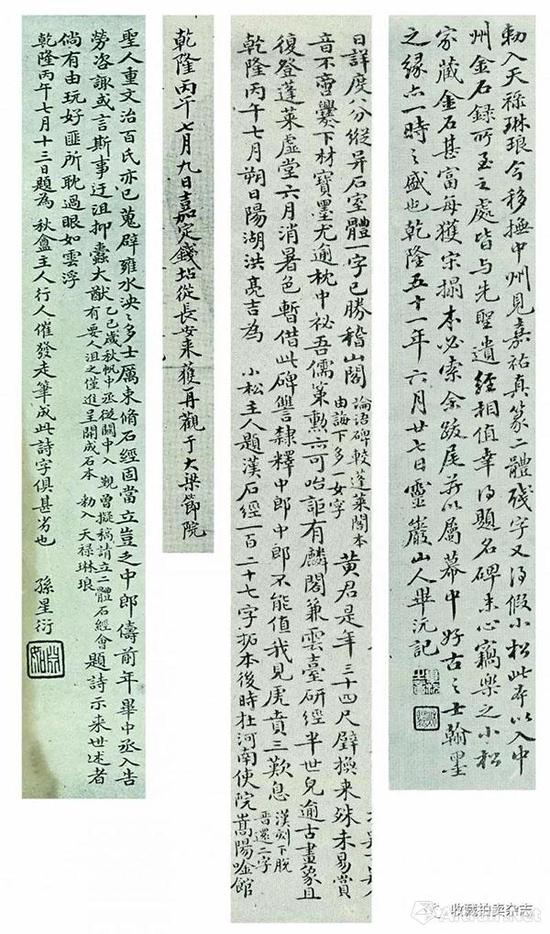 勅入天禄琳琅今移撫中州見嘉祐真篆二體殘字又得假小松此本以入中
州金石錄所至之處皆与先聖遺經相值幸得題名碑末心竊樂之小松
家藏金石甚富每獲宋搨本必索余跋尾並以屬幕中好古之士翰墨
之緣亦一時之盛也乾隆五十一年六月廿七日靈巖山人畢沅記
日詳度八分縱异石室體一字已勝稽山閣 論語碑較蓬萊閣本由誨下多一女字 黃君是年三十四尺璧換来殊未易賞
音不啻爨下材寶墨尤逾枕中祕吾儒策勲亦可咍詎有麟閣兼雲臺研經半世兒逾古畫象且
復登蓬萊虛堂六月消暑色暫借此碑讐隸釋中郎中郎不能值我見虎賁三歎息 漢刻下脫晉還二字
乾隆丙午七月朔日陽湖洪亮吉為 小松主人題漢石經一百二十七字拓本後時在河南使院嵩陽唫館
乾隆丙午七月九日嘉定錢坫從長安来獲再觀于大梁節院
聖人重文治百氏亦已蒐辟雍水泱泱多士厲束脩石經固當立豈乏中郎儔前年畢中丞入告
勞咨諏或言斯事迂沮抑蠹大猷 乙巳歲秋帆中丞從關中入 覲曾擬稿請立二體石經會有要人沮之僅進呈開成石本 勅入天禄琳琅 題詩示来世述者
倘有由玩好匪所耽過眼如雲浮
乾隆丙午七月十三日題為 秋盦主人行人催發走筆成此詩字俱甚劣也 孫星衍
收藏拍卖杂志